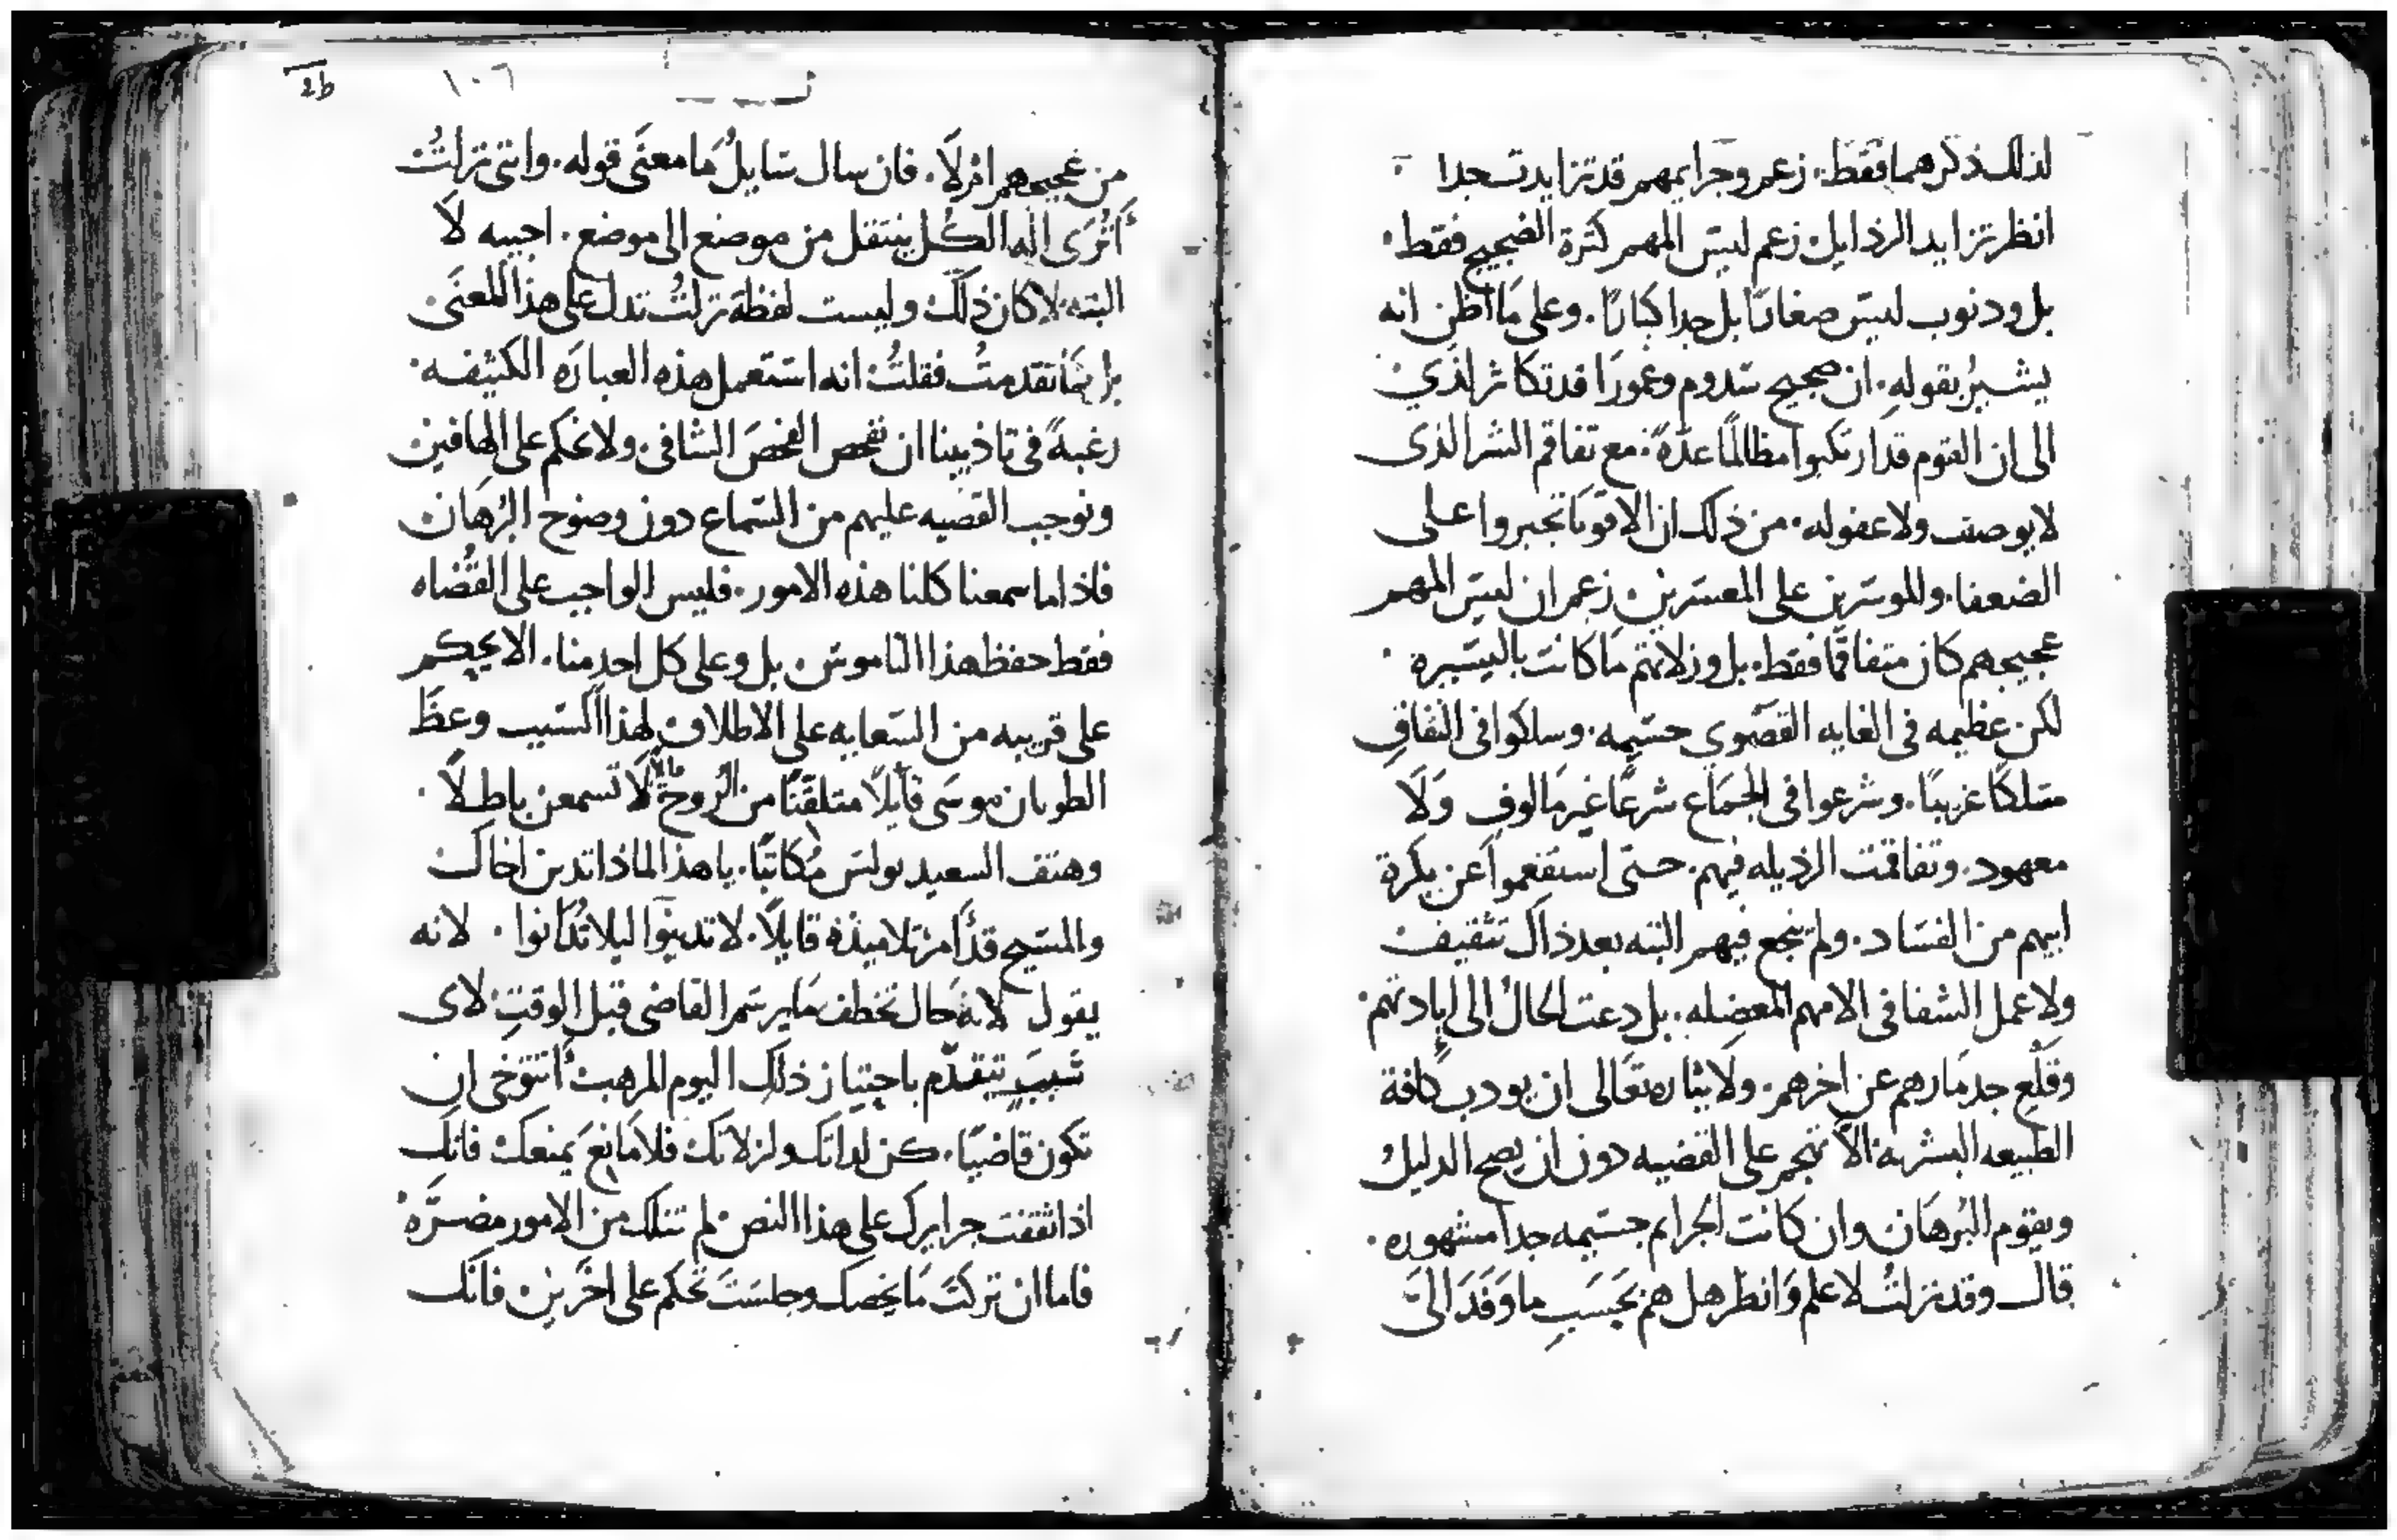 لذلك ذكرهما فقط. زعم وجرايمهم قد تزايدت جدا
انظر تزايد الرذايل زعم ليس المهم كثرة الضجيج فقط.
بل وذنوب ليس صغارًا بل جدا كبارًا. وعلى ما اظن انه
يشير بقوله. ان ضجيج سدوم وغمورا قد تكاثر لذي
الى ان القوم قد ارتكبوا مظالمًا عدّة. مع تفاقم الشر الذى
لا يوصف ولا عفو له. من ذلك ان الاقويا تجبروا على
الضعفا. والموسرين على المعسرين. زعم ان ليس المهم
عجيجهم كان متفاقمًا فقط. بل وزلاتهم ما كانت باليسيرة.
لكن عظيمه فى الغايه القصوي جسيمه. وسلكوا فى النفاق
مسلكًا غريبًا. وشرعوا فى الجماع شرعًا غير مالوف ولا
معهود. وتفاقمت الرذيله فيهم. حتى استفعموا عن بكرة
ابيهم من الفساد. ولم ينجع فيهم البته بعد ذاك تثقيف
ولا عمل الشفا فى الامهم المعضله. بل دعت الحال الى ابادتهم.
وقلع جدمارهم عن اخرهم. ولايثاره تعالى ان يودب كافة
الطبيعه البشريه الا تهجم على القضيه دون ان يصح الدليل
ويقوم البرهان. وان كانت الجرايم جسيمه جدا مشهوره.
قال وقد نزلتُ لاعلم وانظر هل هم بحسب ما وَفَدَ الىّ
١٠٦
2b
من عجيجهم ام لا. فان سال سايل ما معنى قوله. واننى نزلتُ
أترى اله الكل ينتقل من موضع الى موضع. اجيبه لا
البته. لا كان ذلك وليست لفظة نزلتُ تدل على هذا المعنى.
بل بما تقدمتُ فقلتُ انه استعمل هذه العباره الكثيفه.
رغبةً فى تاذيبنا ان نفحص الفحص الشافى. ولا نحكم على الهافين
ونوجب القضيه عليهم من السماع دون وضوح البرهان
فاذا ما سمعنا كلنا هذه الامور. فليس الواجب على القضاه
فقط حفظ هذا الناموس. بل وعلى كل احد منا. الا يحكم
على قريبه من السعايه على الاطلاق لهذا السبب وعظ
الطوبان موسى قايلًا متلقنًا من الروح لا تسمعن باطلًا.
وهتف السعيد بولس مُكاتبًا. يا هذا لماذا تدين اخاك
والمسيح قد أمر تلاميذه قايلًا. لا تدينوا ليلا تُدانوا. لانه
يقول لايةِ حال تخطف ما يرسم القاضى قبل الوقتِ. لاى
سبب تتقدّم باجتياز ذلك اليوم المرهب أتتوخى ان
تكون قاضيًا. كن لذاتك ولزلاتك فلا مانع يمنعك فانك
اذا ثقفت جرايرك على هذا النص. لم تنلك من الامور مضرّه
فاما ان تركت ما يخصك وجلستَ تحكم على اخرين. فانك